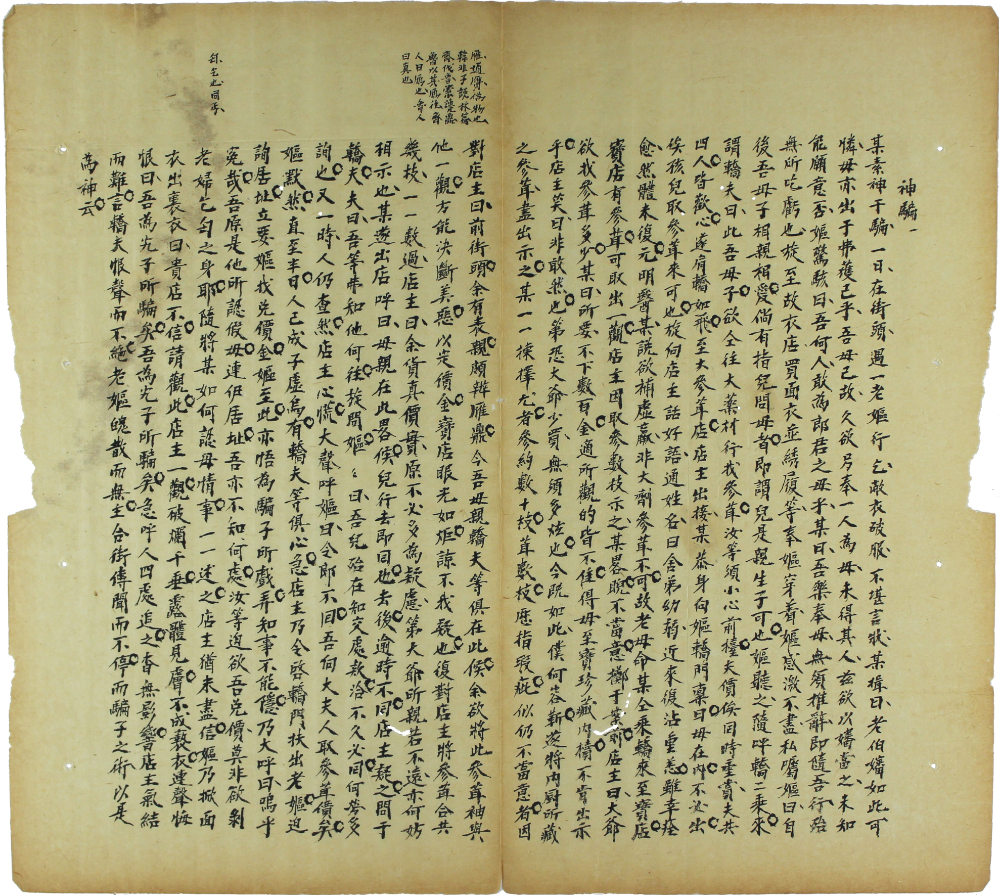 神騙一
某素神于騙一日在街頭遇一老嫗行乞敝衣破服不堪言狀某揖曰老伯嬸如此可
憐毋亦出于弗獲已乎吾母已故久欲另奉一人為母未得其人玆欲以嬸當之未知
能願意否嫗驚駭曰吾何人敢為郎君之母乎某曰吾樂奉母無須推辭即隨吾行殆
無所吃虧也旋至故衣店買面衣並綉履等奉嫗穿着嫗感激不盡私囑嫗曰自
後吾母子相親相愛倘有指兒問母者即謂兒是親生子可也嫗聽之隨呼轎二乘來
謂轎夫曰此吾母子欲仝往大藥材行找參茸汝等須小心前擡夫價俟同時重賞夫共
四人皆歡心遂肩轎如飛至大參茸店店主出接某恭身向嫗轎門稟曰母在內不必出
俟孩兒取參茸來可也旋向店主話好語通姓名曰舍弟幼弱近來復沾重恙雖幸痊
愈然體未復元明醫某說欲補虛羸非大劑參茸不可故老母命某仝乘轎來至寶店
寶店有參茸可取出一觀店主因取參數枝示之某畧睨不當意擲于案前店主曰大爺
欲找參茸多少某曰所要不下數百金適所觀的皆不佳得毋至寶珍藏內櫝不肯出示
乎店主笑曰非敢然也第恐大爺少買無須多炫也今既如此僕何吝斬遂將內厨所藏
之參茸盡出示之某一一揀擇尤者參約數十枝茸數枝歷指瑕疵似仍不當意者因
對店主曰前街頭余有表親頗辨雁鼎今吾母親轎夫等俱在此俟余欲將此參茸袖與
他一觀方能決斷美惡以定價金寶店眼光如炬諒不我疑也復對店主將參茸合共
幾枝一一數過店主曰余貨真價毋原不必多為疑慮第大爺所親若不遠亦何妨
相示也某遂出店呼曰母親在此畧俟兒行去即回也去後逾時不同店主疑之問于
轎夫夫曰吾等弗知他何往旋問嫗々曰吾兒殆在知交處款洽不久必同何勞多
詢也又一時人仍杳然店主心慌大聲呼嫗曰令郎不回吾向大夫人取參茸價矣
嫗默然直至半日人已成子虛烏有轎夫等俱心急店主乃仝啓轎門扶出老嫗迫
詢居址立要嫗找兑價金嫗至此亦悟為騙子所戲弄知事不能隱乃大呼曰嗚乎
冤哉吾原是他所認假母連伊居址吾亦不知何處汝等迫欲吾兑價莫非欲剝
老婦乞匄之身耶隨將某如何認母情事一一述之店主猶未盡信嫗乃掀面
衣出裏衣曰貴店不信請觀此店主一觀破爛千垂處體見膚不成褻衣連聲悔
恨曰吾為光子所騙矣吾為光子所騙矣急呼人四處追之杳無影響店主氣結
而難言轎夫恨聲而不絕老嫗魄散而無主合街傳聞而不停而騙子之術以是
為神云
雁
韓非子說林
魯以其鴈往齊
人曰鴈也魯人
曰真也